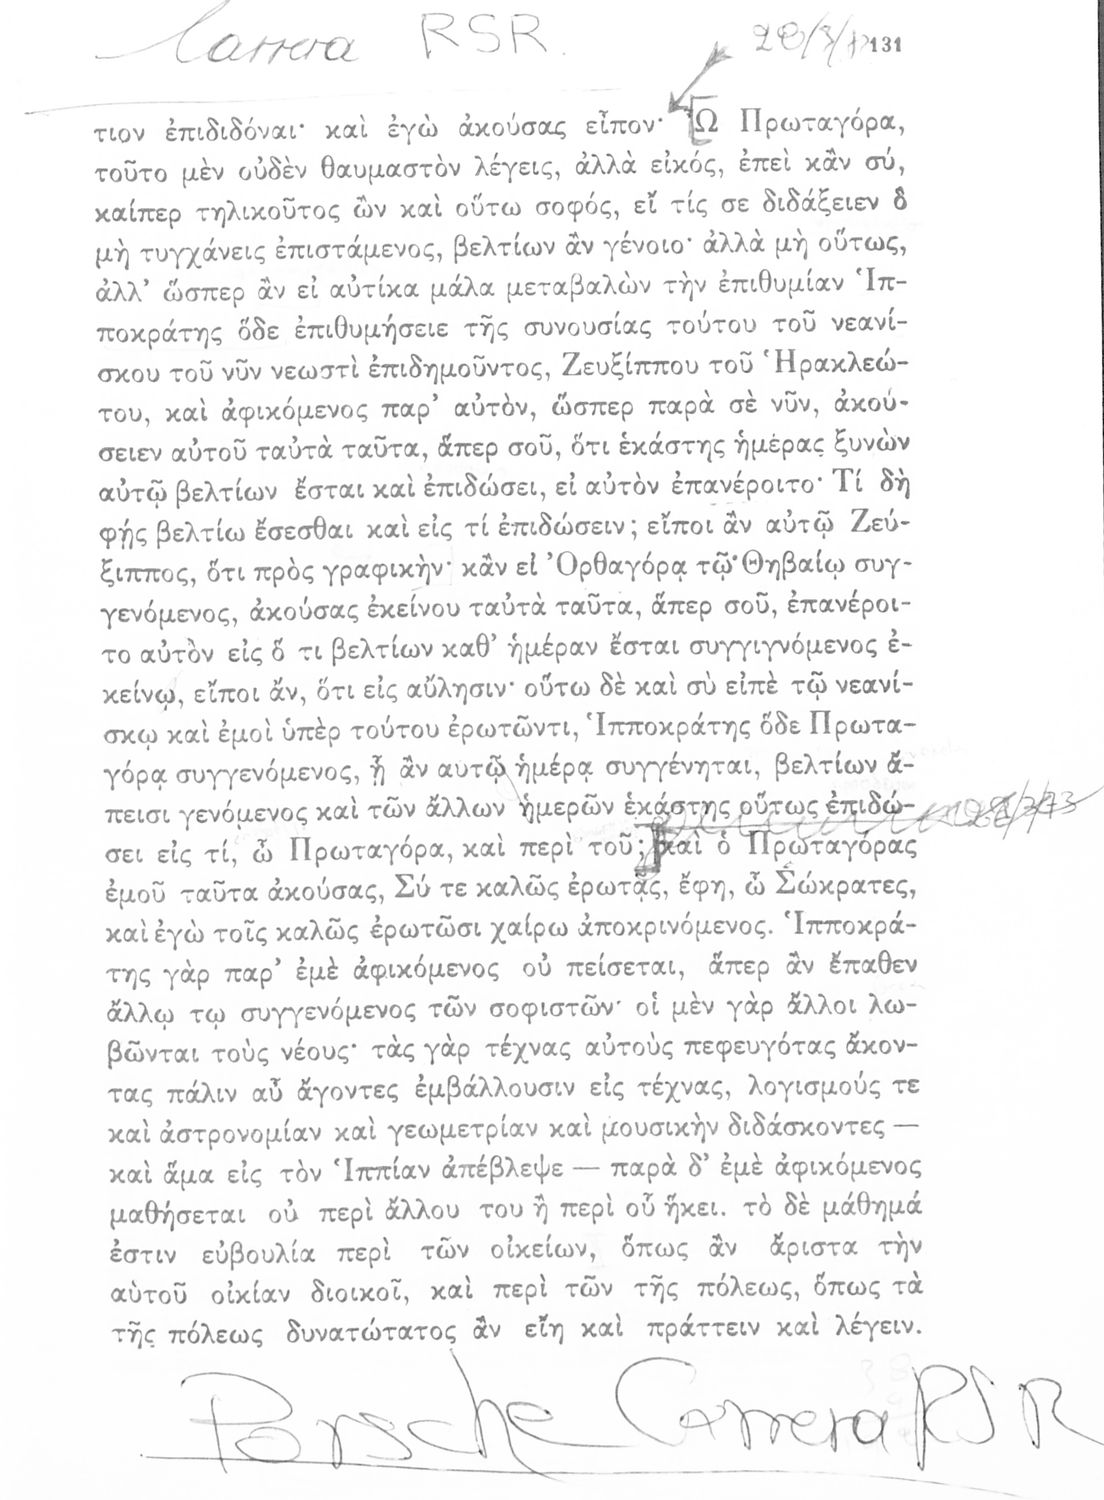 Carrera RSR.
131
τιον ἐπιδιδόναι· καὶ ἐγὼ ἀκούσας εἶπον· Ὦ Πρωταγόρα,
τοῦτο μὲν οὐδὲν θαυμαστὸν λέγεις, ἀλλὰ εἰκός, ἐπεὶ κἂν σύ,
καίπερ τηλικοῦτος ὢν καὶ οὕτω σοφός, εἴ τίς σε διδάξειεν ὃ
μὴ τυγχάνεις ἐπιστάμενος, βελτίων ἂν γένοιο· ἀλλὰ μὴ οὕτως,
ἀλλ’ ὥσπερ ἂν εἰ αὐτίκα μάλα μεταβαλὼν τὴν ἐπιθυμίαν Ἱπ-
ποκράτης ὅδε ἐπιθυμήσειε τῆς συνουσίας τούτου τοῦ νεανί-
σκου τοῦ νῦν νεωστὶ ἐπιδημοῦντος, Ζευξίππου τοῦ Ἡρακλεώ-
του, καὶ ἀφικόμενος παρ’ αὐτὸν, ὥσπερ παρὰ σὲ νῦν, ἀκού-
σειεν αὐτοῦ ταὐτὰ ταῦτα, ἅπερ σοῦ, ὅτι ἑκάστης ἡμέρας ξυνὼν
αὐτῷ βελτίων ἔσται καὶ ἐπιδώσει, εἰ αὐτὸν ἐπανέροιτο· Τί δὴ
φῄς βελτίω ἔσεσθαι καὶ εἰς τί ἐπιδώσειν; εἴποι ἂν αὐτῷ Ζεύ-
ξιππος, ὅτι πρὸς γραφικὴν· κἂν εἰ Ὀρθαγόρᾳ τῷ Θηβαίῳ συγ-
γενόμενος, ἀκούσας ἐκείνου ταὐτὰ ταῦτα, ἅπερ σοῦ, ἐπανέροι-
το αὐτὸν εἰς ὅ τι βελτίων καθ’ ἡμέραν ἔσται συγγιγνόμενος ἐ-
κείνῳ, εἴποι ἄν, ὅτι εἰς αὔλησιν· οὕτω δὲ καὶ σὺ εἰπὲ τῷ νεανί-
σκῳ καὶ ἐμοὶ ὑπὲρ τούτου ἐρωτῶντι, Ἱπποκράτης ὅδε Πρωτα-
γόρᾳ συγγενόμενος, ᾗ ἂν αυτῷ ἡμέρᾳ συγγένηται, βελτίων ἄ-
πεισι γενόμενος καὶ τῶν ἄλλων ἡμερῶν ἑκάστης οὕτως ἐπιδώ-
σει εἰς τί, ὦ Πρωταγόρα, καὶ περὶ τοῦ; καὶ ὁ Πρωταγόρας
ἐμοῦ ταῦτα ἀκούσας, Σύ τε καλῶς ἐρωτᾷς, ἔφη, ὦ Σώκρατες,
καὶ ἐγὼ τοῖς καλῶς ἐρωτῶσι χαίρω ἀποκρινόμενος. Ἱπποκρά-
της γὰρ παρ’ ἐμὲ ἀφικόμενος οὐ πείσεται, ἅπερ ἂν ἔπαθεν
ἄλλῳ τῳ συγγενόμενος τῶν σοφιστῶν· οἱ μὲν γὰρ ἄλλοι λω-
βῶνται τοὺς νέους· τὰς γὰρ τέχνας αὐτοὺς πεφευγότας ἄκον-
τας πάλιν αὖ ἄγοντες ἐμβάλλουσιν εἰς τέχνας, λογισμούς τε
καὶ ἀστρονομίαν καὶ γεωμετρίαν καὶ μουσικὴν διδάσκοντες —
καὶ ἅμα εἰς τὸν Ἱππίαν ἀπέβλεψε — παρὰ δ’ ἐμὲ ἀφικόμενος
μαθήσεται οὐ περὶ ἄλλου του ἢ περὶ οὗ ἥκει. τὸ δὲ μάθημά
ἐστιν εὐβουλία περὶ τῶν οἰκείων, ὅπως ἂν ἄριστα τὴν
αὑτοῦ οἰκίαν διοικοῖ, καὶ περὶ τῶν τῆς πόλεως, ὅπως τὰ
τῆς πόλεως δυνατώτατος ἂν εἴη καὶ πράττειν καὶ λέγειν.
Porsche Carrera RSR